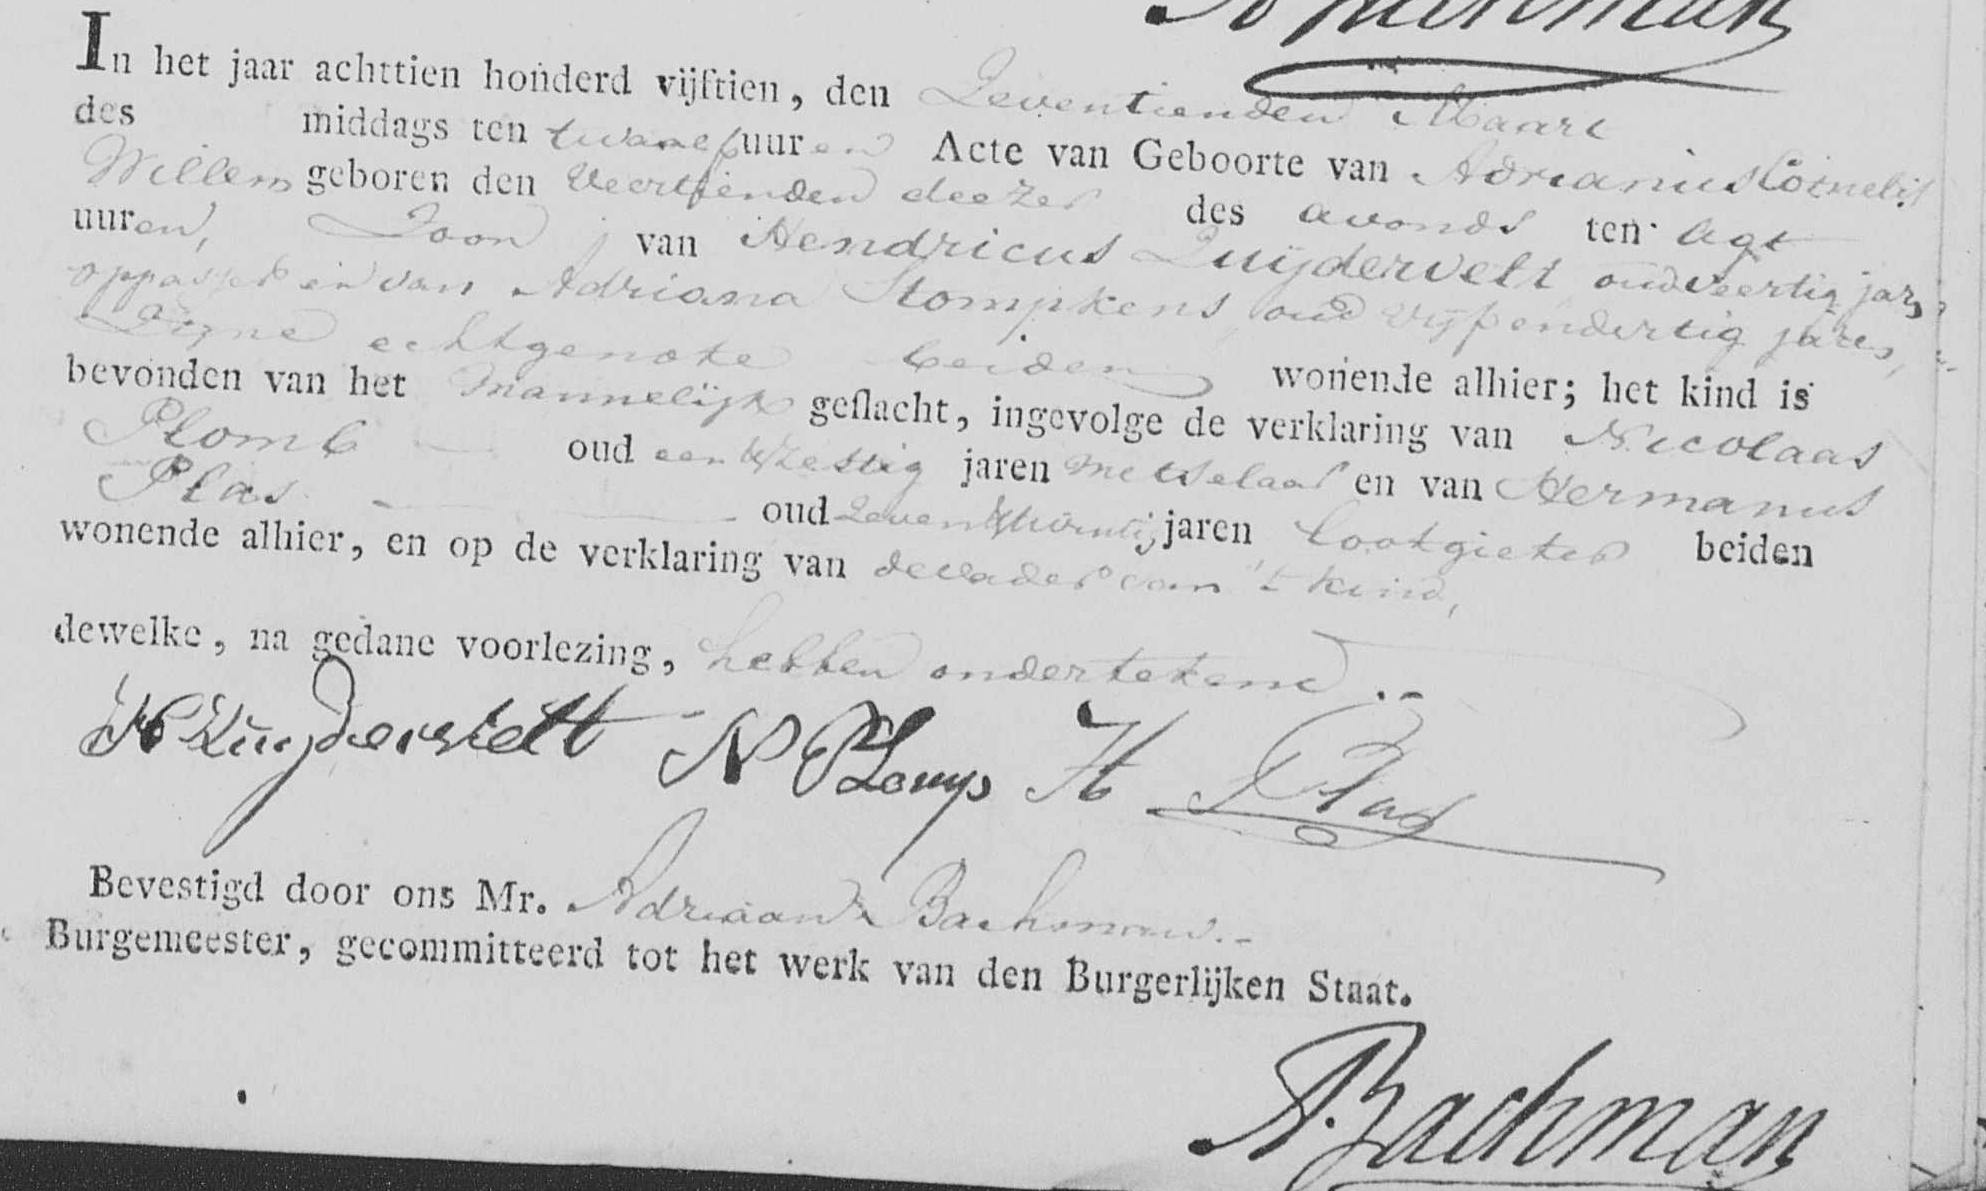 A Bachman
In het jaar achttien honderd vijftien, den Zeventienden Maart
des middags ten twaalf uuren Acte van Geboorte van Adrianus Cornelis
Willem geboren den Veertienden deezer des avonds ten agt
uuren, Zoon van Hendricus Zuijdervelt oud veertig jaren
oppasser en van Adriana Stompkens oud vijfendertig jaren,
Zijne echtgenote beiden wonende alhier; het kind is
bevonden van het Mannelijk geslacht, ingevolge de verklaring van Nicolaas
Plomb oud een & zestig jaren metselaar en van Hermanus
Plas oud zeven & twintig jaren Lootgieter beiden
wonende alhier, en op de verklaring van de vader van 't kind,
dewelke, na gedane voorlezing, hebben ondertekend.
H Zuyderveltt N PLomp H Plas
Bevestigd door ons Mr. Adriaan Bachman.
Burgemeester, gecommitteerd tot het werk van den Burgerlijken Staat.
A Bachman